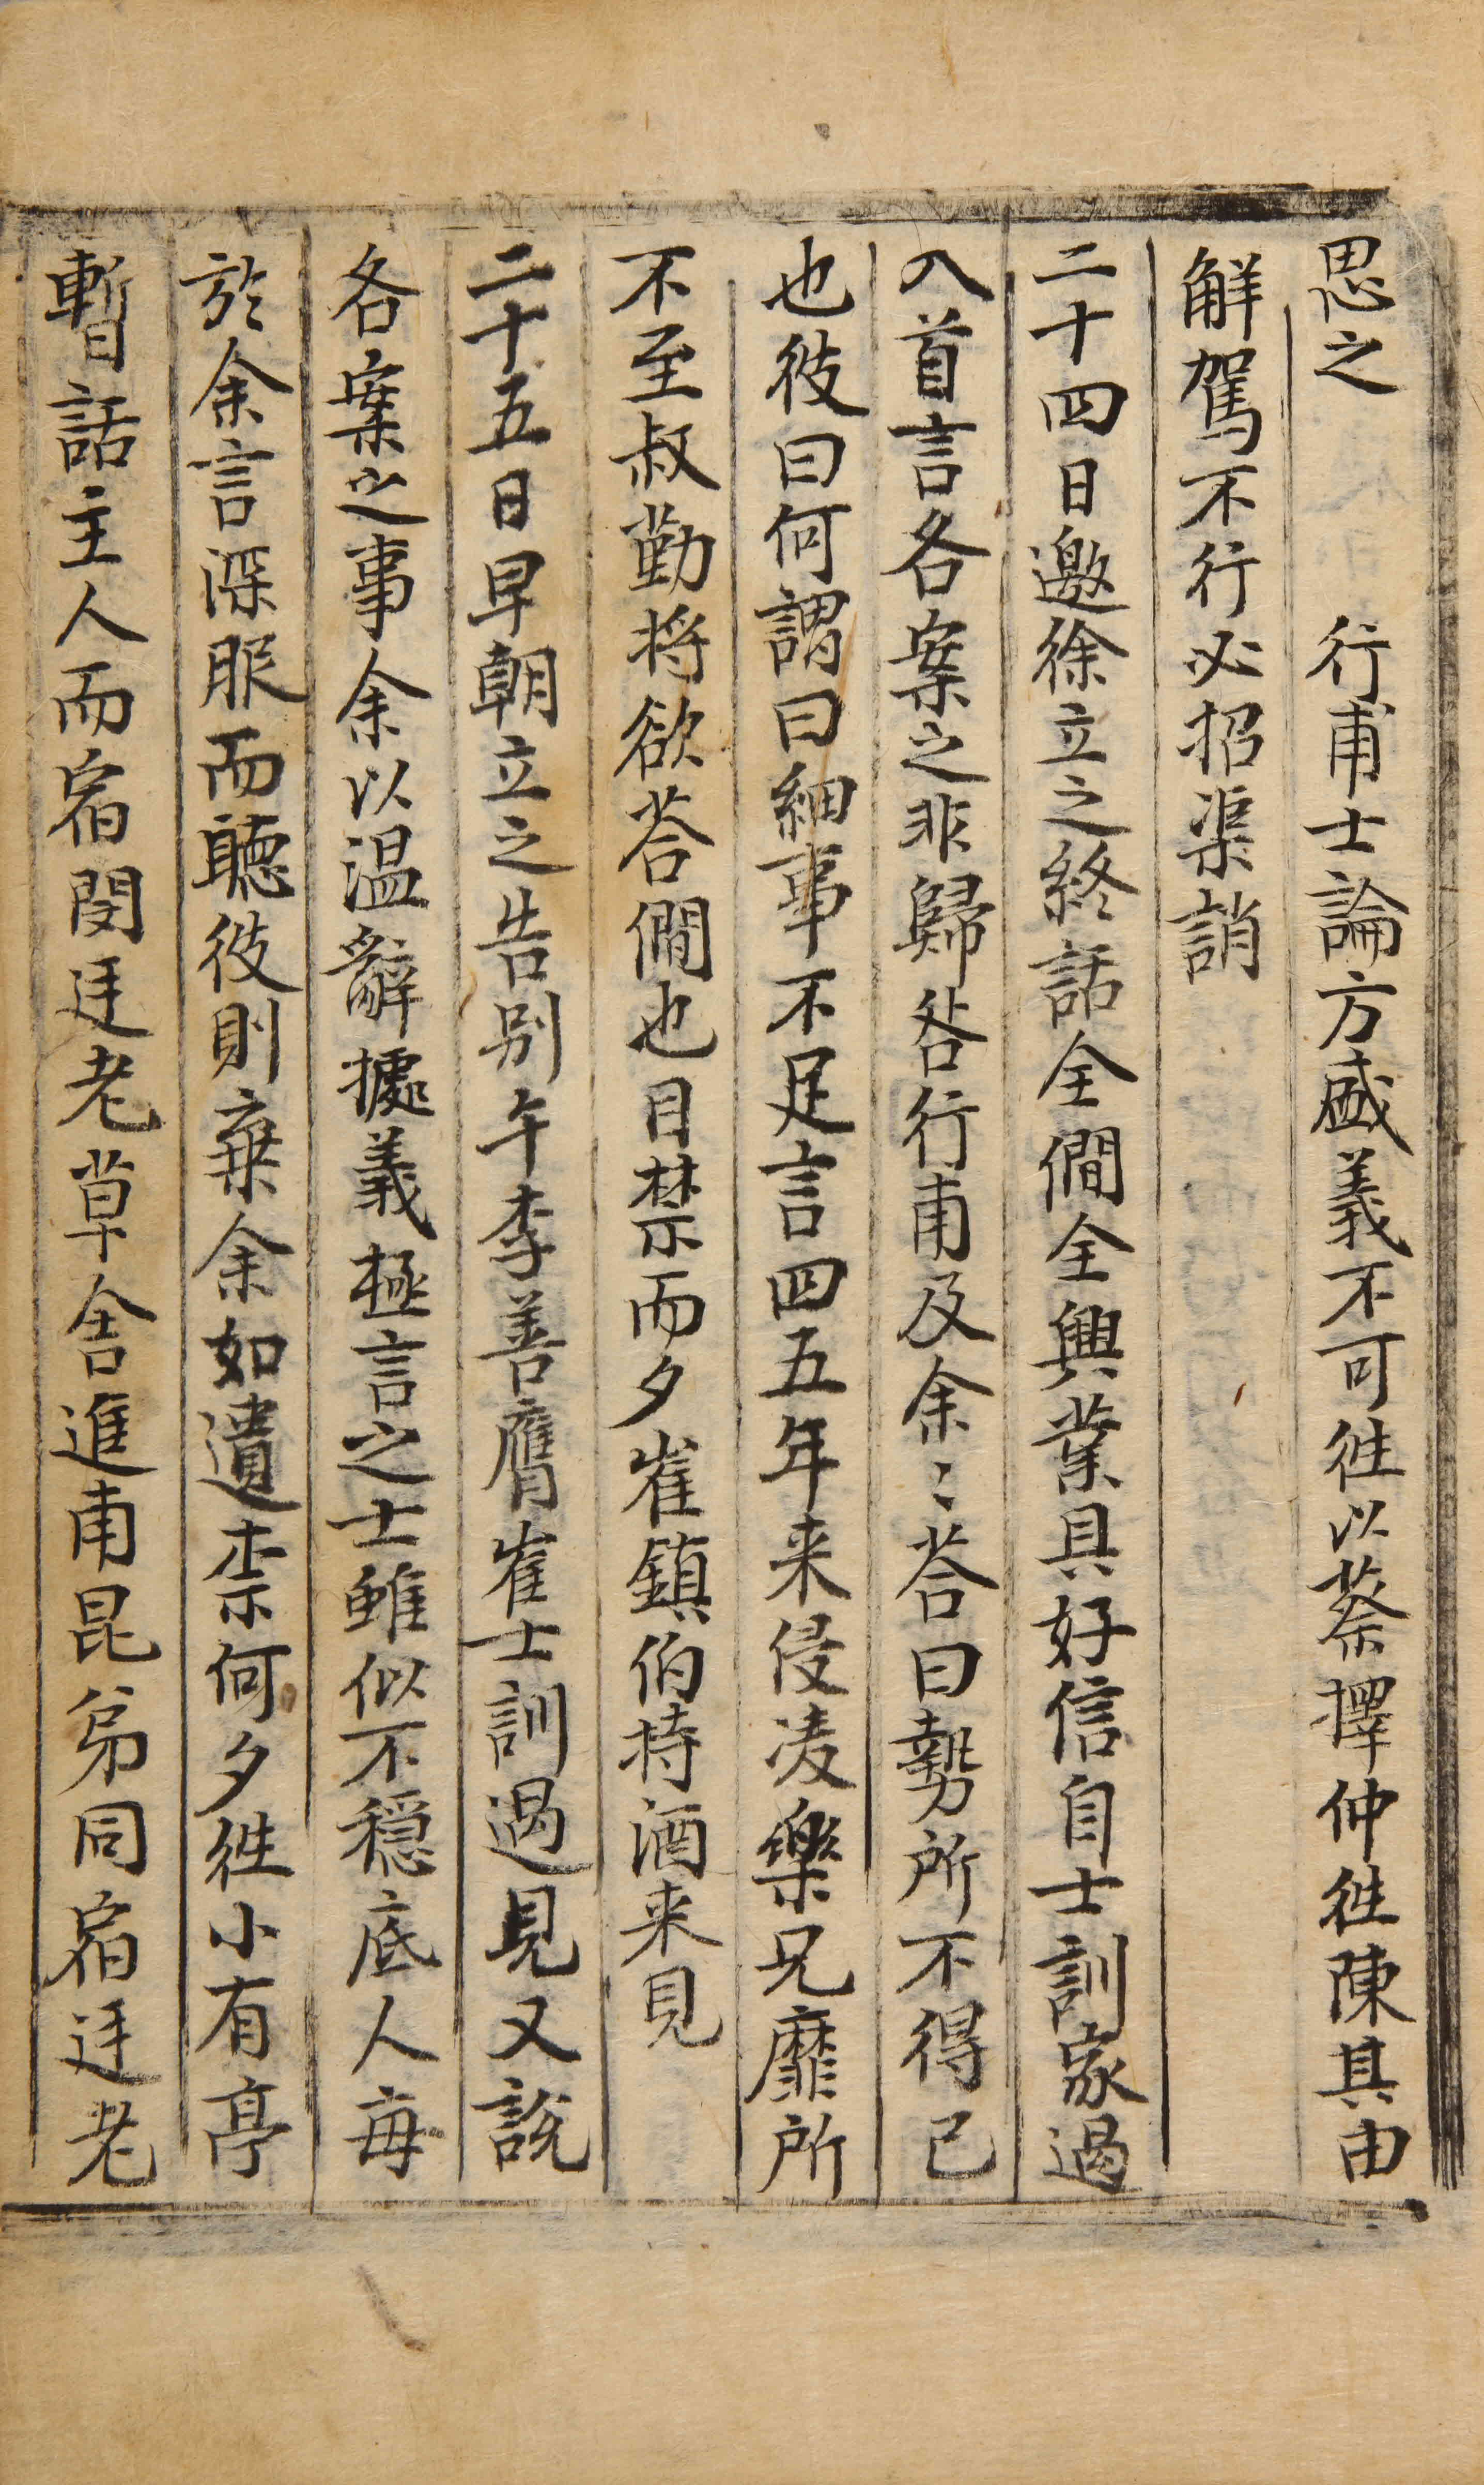 思之　行甫士論方盛義不可徃以蔡擇仲徃陳其由
觧駕不行必招渠誚
二十四日邀徐立之終話全僩全興業具好信自士訓家過
入首言各案之非歸咎行甫及余〻荅曰勢所不得已
也彼曰何謂曰細事不足言四五年来侵凌樂兄靡所
不至叔勤将欲荅僩也目禁而夕崔鎮伯持酒来見
二十五日早朝立之告别午李善膺崔士訓過見又説
各案之事余以温辭據義極言之士雖似不穏底人毎
於余言深服而聽彼則棄余如遺柰何夕徃小有亭
暫話主人而宿閔廷老草舎進甫昆弟同宿廷老